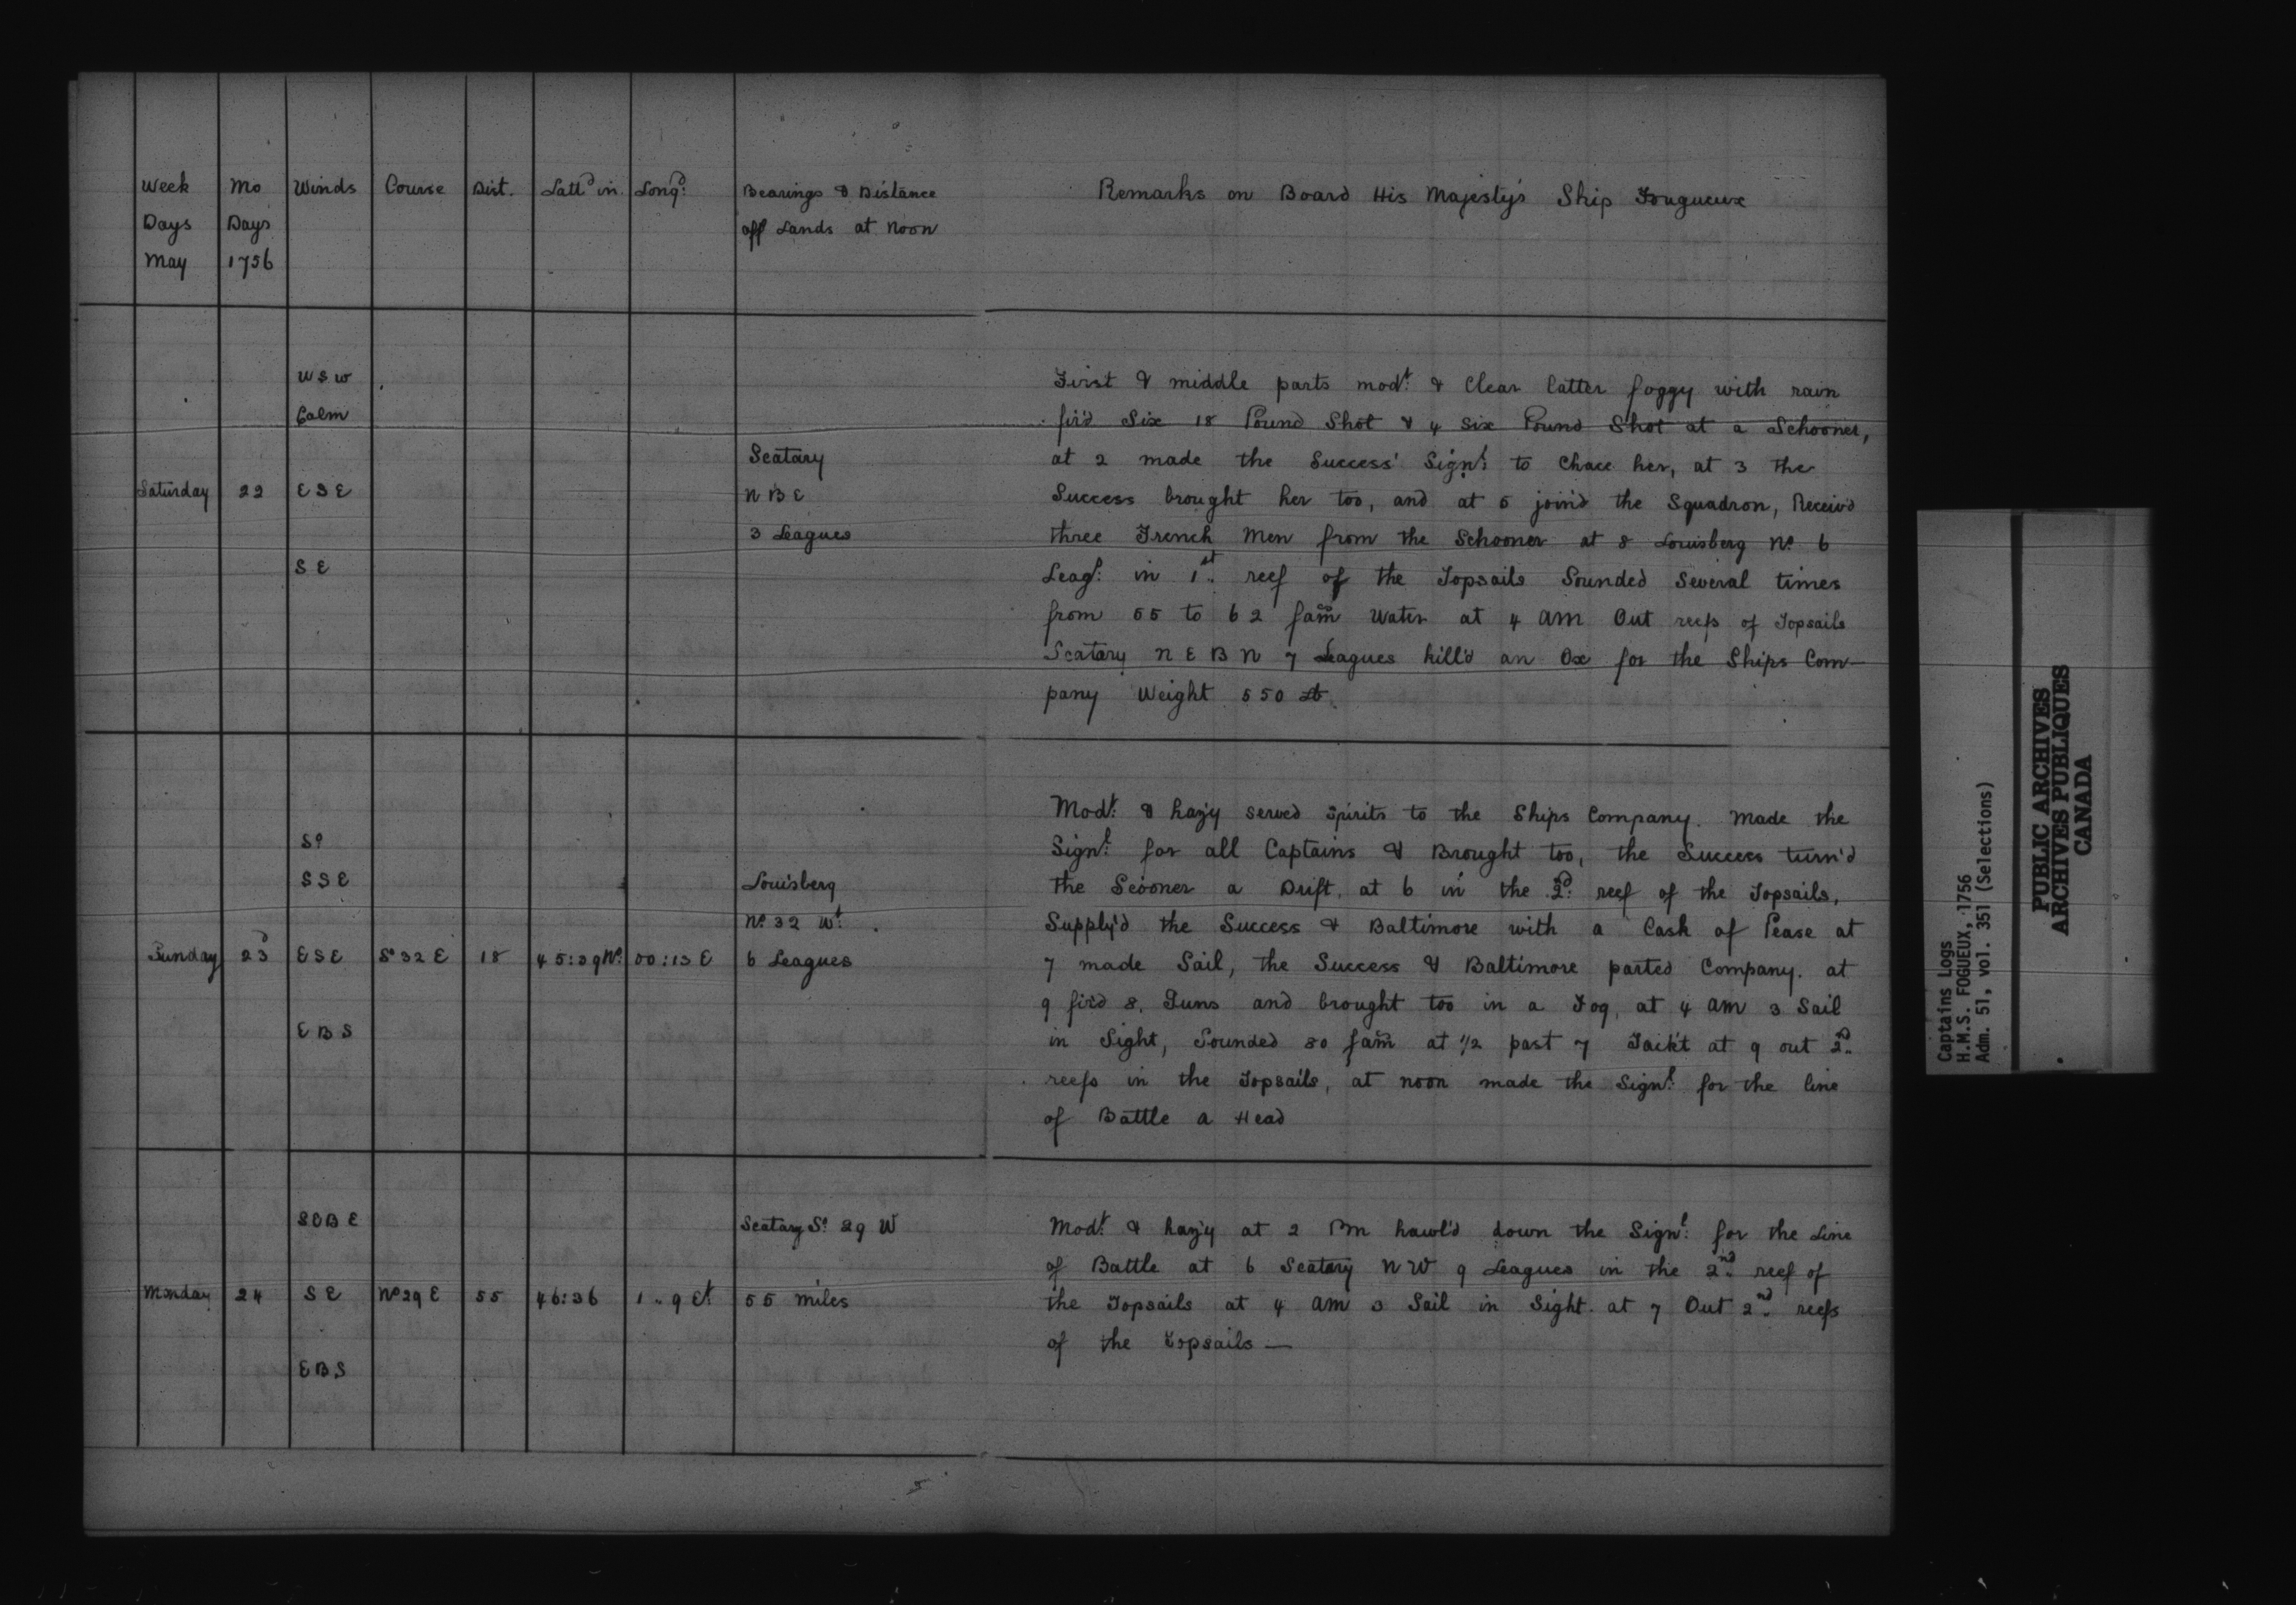 Week Days May
Mo Days 1756
Winds
Course
Dist.
Lattd in
Longd:
Bearings & Distance
off Lands at Noon
Remarks on Board His Majesty's Ship Fougueux
WSW
Calm
Saturday 22 ESE
SE
Scatary
N B E
3 Leagues
First & middle parts modt: & Clear latter foggy with rain
fir'd Six 18 Pound Shot & 4 Six Pound Shot at a Schooner,
at 2 made the Success' Signl: to Chace her, at 3 the
Success brought her too, and at 5 join'd the Squadron, Receiv'd
three French Men from the Schooner at 8 Louisberg No 6
Leags: in 1st reef of the Topsails Sounded Several times
from 55 to 62 fam Water at 4 AM Out reefs of Topsails
Scatary N E B N 7 Leagues kill'd an Ox for the Ships Com-
pany Weight 550 lb
So
SSE
Sunday 23 ESE So 32 E 18 45:39 No: 00:13 E
E B S
Louisberg
No 32 Wt.
6 Leagues
Modt: & hazy served Spirits to the Ships Company. Made the
Signl: for all Captains & Brought too, the Success turn'd
the Scooner a Drift, at 6 in the 2d: reef of the Topsails,
Supply'd the Success & Baltimore with a Cask of Pease at
7 made Sail, the Success & Baltimore parted Company. at
9 fir'd 8, Guns and brought too in a Fog, at 4 am 3 Sail
in Sight, Sounded 30 fam at 1/2 past 7 Tack't at 9 out 2d
reefs in the Topsails, at noon made the Signl: for the line
of Battle a Head
SEBE
Monday 24 SE No 29 E 55 46:36 1 .. 9 Et
EBS
Scatary So: 29 W
55 miles
Modt: & hazy at 2 Pm hawl'd down the Signl: for the Line
of Battle at 6 Scatary NW 9 Leagues in the 2nd reef of
the Topsails at 4 AM 3 Sail in Sight. at 7 Out 2nd reefs
of the topsails —
Captains Logs
H.M.S. FOGUEUX, 1756
Adm. 51, vol. 351 (Selections)
PUBLIC ARCHIVES
ARCHIVES PUBLIQUES
CANADA